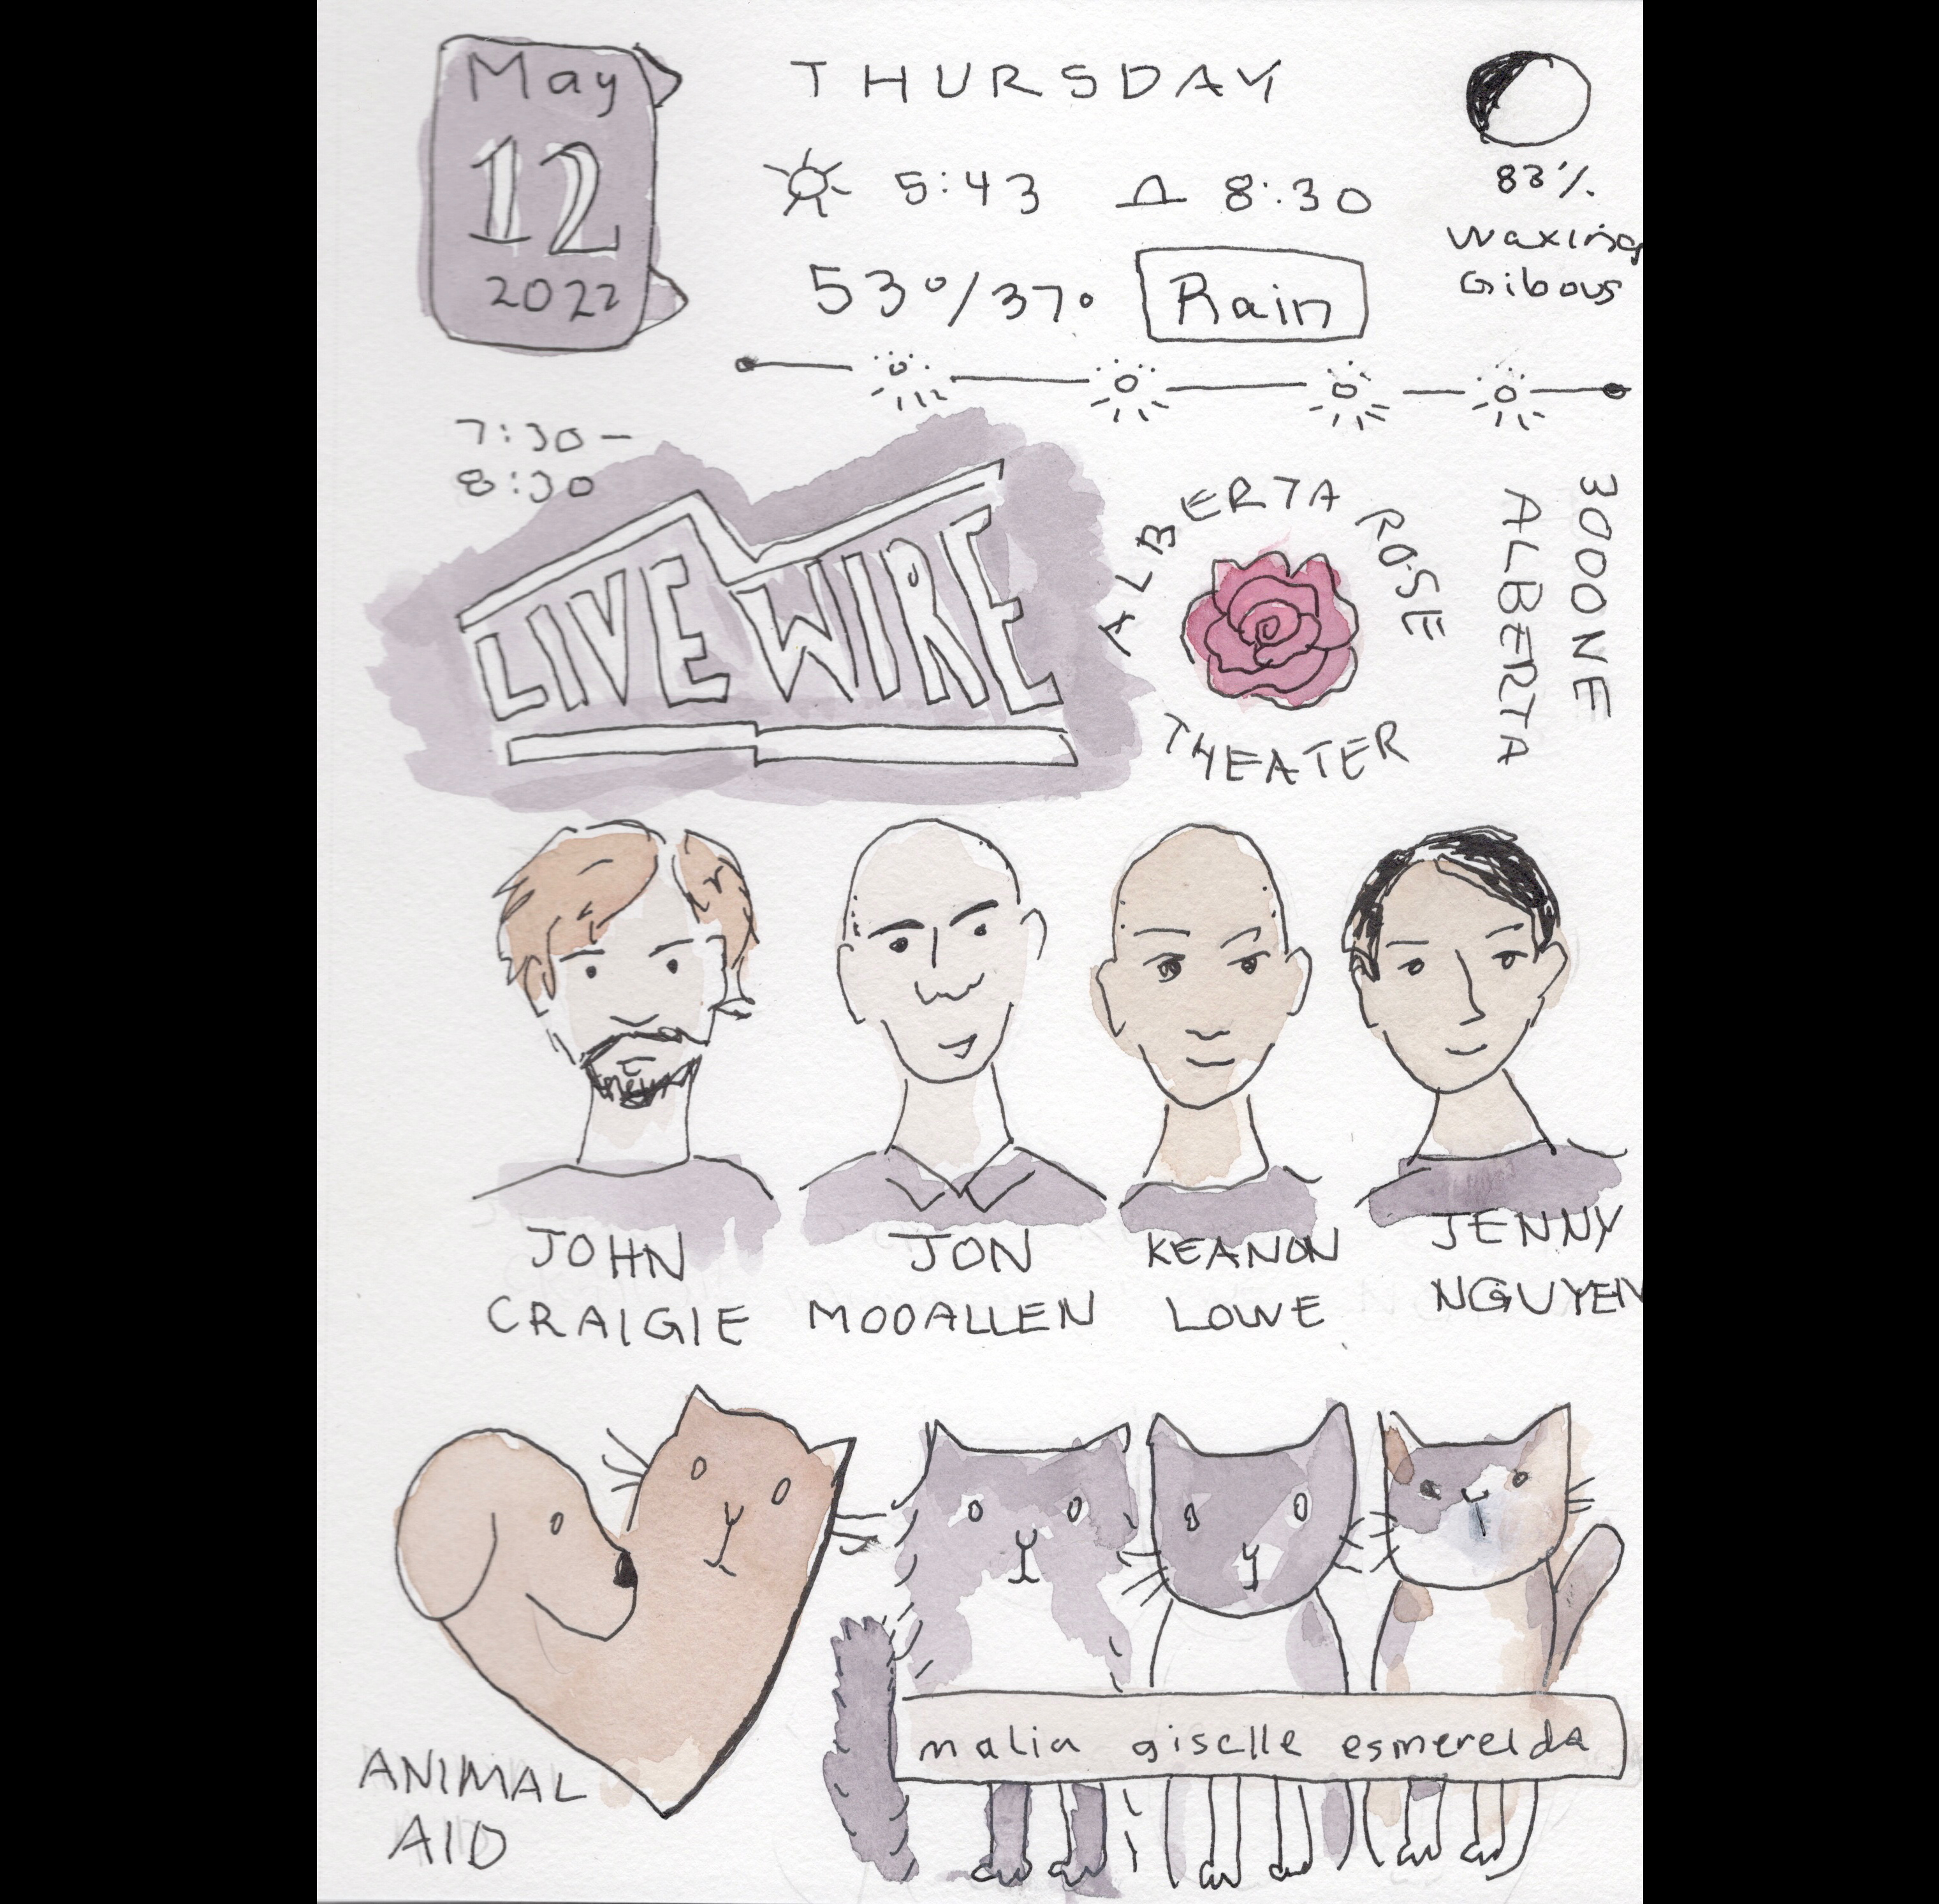 May
12
2022
THURSDAY
5:43 8:30
53°/37° Rain
83%
Waxing
Gibous
7:30-
8:30
LIVE WIRE
ALBERTA ROSE
THEATER
3000 NE
ALBERTA
JOHN
CRAIGIE
JON
MOOALLEN
KEANON
LOWE
JENNY
NGUYEN
ANIMAL
AID
malia giselle esmerelda